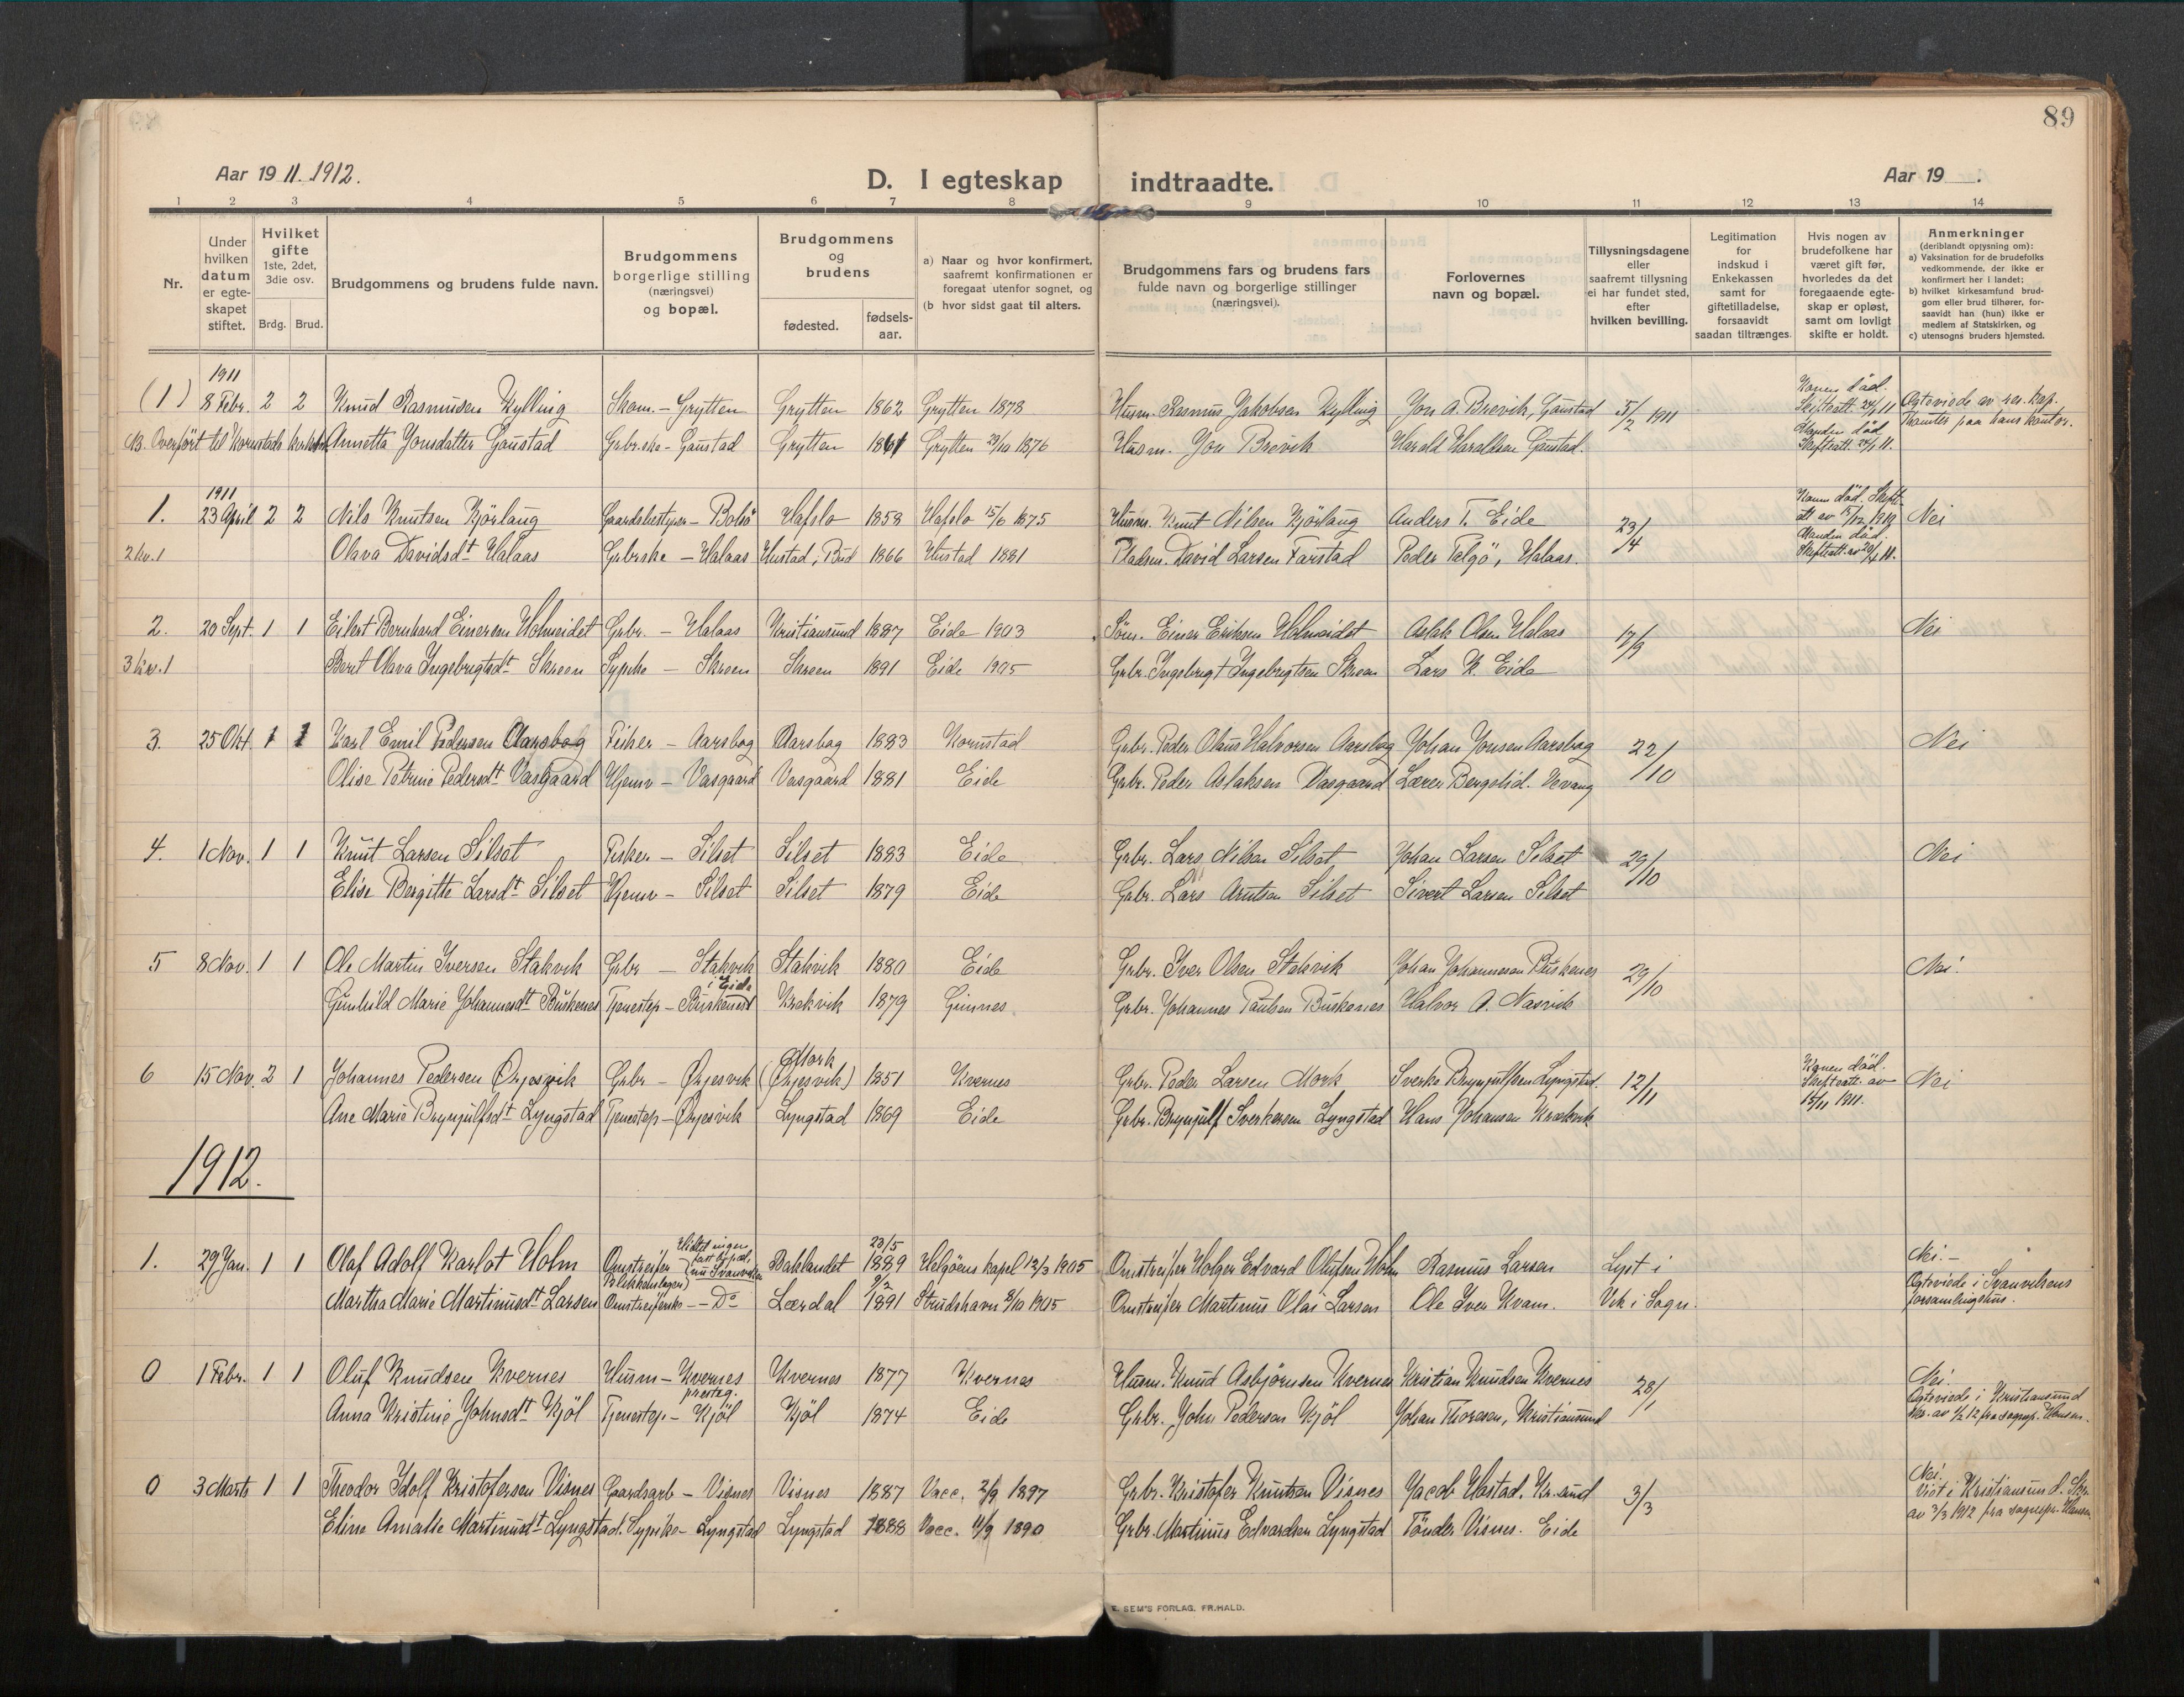 89
Aar 19 11. 1912.
D. I egteskap indtraadte.
Aar 19 .
1 2 3 4 5 6 7 8 9 10 11 12 13 14
Nr.
Under hvilken datum er egteskapet stiftet.
Hvilket gifte 1ste, 2det, 3die osv.
Brdg. Brud.
Brudgommens og brudens fulde navn.
Brudgommens borgerlige stilling (næringsvei) og bopæl.
Brudgommens og brudens
fødested.
fødsels-aar.
a) Naar og hvor konfirmert, saafremt konfirmationen er foregaat utenfor sognet, og
(b hvor sidst gaat til alters.
Brudgommens fars og brudens fars fulde navn og borgerlige stillinger (næringsvei).
Forlovernes navn og bopæl.
Tillysningsdagene eller saafremt tillysning ei har fundet sted, efter hvilken bevilling.
Legitimation for indskud i Enkekassen samt for giftetilladelse, forsaavidt saadan tiltrænges.
Hvis nogen av brudefolkene har været gift før, hvorledes da det foregaaende egteskap er opløst, samt om lovligt skifte er holdt.
Anmerkninger (deriblandt oplysning om):
a) Vaksination for de brudefolks vedkommende, der ikke er konfirmert her i landet;
b) hvilket kirkesamfund brudgom eller brud tilhører, forsaavidt han (hun) ikke er medlem af Statskirken, og
c) utensogns bruders hjemsted.
1911
(1) 8 Febr. 2 2 Knud Rasmusen Kylling Skom. - Grytten Grytten 1862 Grytten 1878 Husm. Rasmus Jakobsen Kylling Jon A. Brevik, Gaustad 5/2 1911 Konen död. Skifteatt. 24/1 11 Egteviede av res. kap. paa hans kontor.
NB. Overført til Kornstads Annetta Jonsdatter Gaustad Grbr.ske - Gaustad Grytten 1861 Grytten 29/10 1876 Husm. Jon Brevik Harald Haraldsen Gaustad. Manden död Skifteatt. 24/1 11.
1911
1. 23 April 2 2 Nils Knutsen Kjörlaug Gaardsbestyrer - Bolsö Hafslo 1858 Hafslo 15/6 1875 Husm. Knut Nilsen Kjörlaug Anders T. Eide 23/4 Konen död. Skift. att av 15/12 1910 Nei
2 kv. 1 Olava Davidsdt Halaas Grbrske - Halaas Hustad, Bud 1866 Hustad 1881 Pladsm. David Larsen Farstad Peder Talgö, Halaas. Manden död. Skifteatt. av 20/4 11.
2. 20 Sept. 1 1 Eilert Bernhard Einersen Holmeidet Grbr. - Halaas Kristiansund 1887 Eide 1903 Söm. Einer Eriksen Holmeidet Aslak Olsen Halaas 17/9 Nei
3 kv. 1 Berit Olava Ingebrigtsdt Skreen Sypike - Skreen Skreen 1891 Eide 1905 Grbr. Ingebrigt Ingebrigtsen Skreen Lars K. Eide
3. 25 Okt. 1 1 Karl Emil Pedersen Aarsbog Fisker - Aarsbog Aarsbog 1883 Kornstad Grbr. Peder Olaus Halvorsen Aarsbog Johan Jonsen Aarsbog 22/10 Nei
Olise Petrine Pedersdt Vasgaard Hjemv - Vasgaard Vasgaard 1881 Eide Grbr. Peder Aslaksen Vasgaard Lærer Bergslid.
4. 1 Nov. 1 1 Knut Larsen Silset Fisker - Silset Silset 1883 Eide Grbr. Lars Nilsen Silset Johan Larsen Silset 29/10 Nei
Elise Bergitte Larsdt Silset Hjemv - Silset Silset 1879 Eide Grbr. Lars Arntsen Silset Sivert Larsen Silset
5 8 Nov. 1 1 Ole Martin Iversen Stakvik Grbr - Stakvik Stakvik 1880 Eide Grbr. Iver Olsen Stakvik Johan Johannesen Buskenes 29/10 Nei.
i Eide
Gunhild Marie Johannesdt Buskenes Tjenestep - Buskenes Krakvik 1879 Gimnes Grbr. Johannes Paulsen Buskenes Halvor A. Nasvik
6 15 Nov. 2 1 Johannes Pedersen Ørjesvik Grbr - Ørjesvik Mork (Ørjesvik) 1851 Kvernes Grbr. Peder Larsen Mork Sverke Brynjulfsen Lyngstad. 12/11 Konen död. Skifteatt. av 15/11 1911. Nei
Ane Marie Brynjulfsdt Lyngstad Tjenestep - Ørjesvik Lyngstad 1869 Eide Grbr. Brynjulf Sverkersen Lyngstad Hans Johansen Krakvik
1912.
1. 29 Jan. 1 1 Olaf Adolf Karlot Holm Omstreifer Blikkenslager} Hidtil ingen fast bopæl, nu Svanviken Baklandet 23/5 1889 Helgöens kapel 12/3 1905 Omstreifer Holger Edvard Olufsen Holm Rasmus Larsen Lyst i Nei.-
Martha Marie Martinusdt Larsen Omstreiferske - Do Lærdal 9/2 1891 Strudshavn 8/10 1905 Omstreifer Martinus Olai Larsen Ole Iver Kvam. Vik i Sogn. Egteviede i Svanvikens forsamlingshus.
0 1 Febr. 1 1 Oluf Knudsen Kvernes Husm - Kvernes Kvernes 1877 Kvernes Husm. Knud Asbjörnsen Kvernes Kristian Knudsen Kvernes 28/1 Nei.
presteg.
Anna Kristine Johnsdt Kjöl Tjenestep. - Kjöl Kjöl 1874 Eide Grbr. John Pedersen Kjöl Johan Thoresen, Kristiansund Egteviede i Kristiansund Skr. av 1/2 12 fra sognepr. Hansen.
0 3 Marts 1 1 Theodor Idolf Kristofersen Visnes Gaardsarb - Visnes Visnes 1887 Vacc. 2/9 1897 Grbr. Kristofer Knutsen Visnes Jacob Hastad, Kr.sund 3/3 Nei. Viet i Kristiansund. Skr. av 3/3 1912 fra sognepr. Hansen
Eline Amalie Martinusdt Lyngstad. Sypike - Lyngstad Lyngstad 1888 Vacc. 11/9 1890 Grbr. Martinus Edvardsen Lyngstad Tönder Visnes. Eide
E. SEM'S FORLAG, FR.HALD.